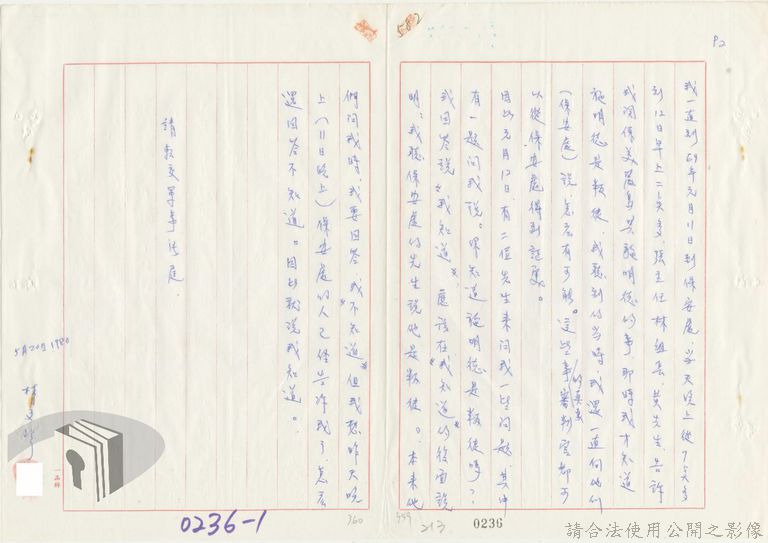 P2
我一直到69年元月11日到保安處,當天晚上從7点多
到12日早上二点多,張主任林組長,黃先生,告訴
我關保美麗島共施明德的事,那時我才知道
施明德是叛徒,我聽到的當時,我還一直向他們
(保安處)說,怎麼有可能。這些事的真象審判官都可
以從保安處得到証實。
因此元月12日,有二位先生來問我一些問題,其中
有一題問我說。你知道施明德是叛徒嗎?
我回答說“我知道”,應該在“我知道”的後面說
明,我聽保安處的先生說他是叛徒。本來他
們問我時,我要回答“我不知道”但我想昨天晚
上(11日晚上)保安處的人已經告訴我了,怎麼
還回答不知道。因此就說我知道。
請教交軍事法庭
5月20日1980
林
一品榊
0236-1
360
359
213
0236
請合法使用公開之影像